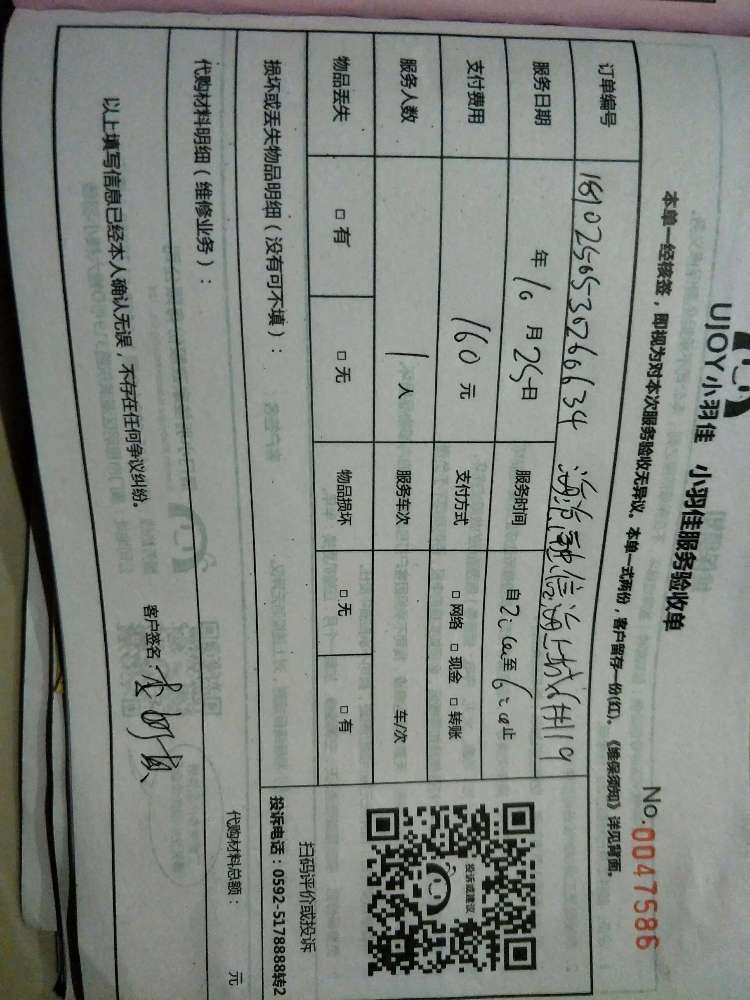 UJOY小羽佳 小羽佳服务验收单
No.0047586
本单一经接签，即视为对本次服务验收无异议。本单一式两份，客户留存一份(红)。《维保须知》详见背面。
订单编号 181025053026634 海沧融信海上城 119
服务日期 年10月25日 服务时间 自2:00至6:00止
支付费用 160元 支付方式 □网络 □现金 □转账
服务人数 1人 服务车次 车/次
物品丢失 □有 □无 物品损坏 □无 □有
投诉或建议
扫码评价或投诉
投诉电话：0592-5178888转2
损坏或丢失物品明细（没有可不填）：
代购材料明细（维修业务）：
代购材料总额： 元
以上填写信息已经本人确认无误，不存在任何争议纠纷。
客户签名：